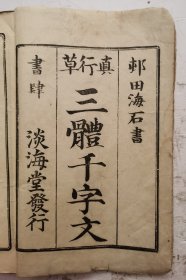 邨田海石書
真行草
三體千字文
書肆
淡海堂發行